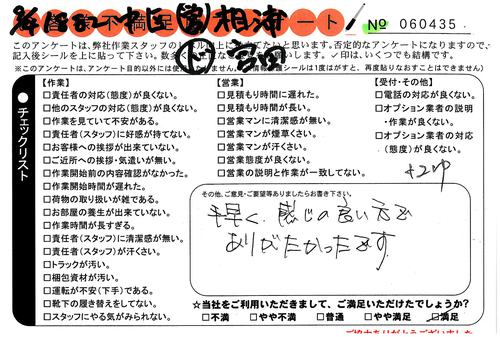 不満足 シート
相浦
No 060435
このアンケートは、弊社作業スタッフの
記入後シールを上に貼って下さい。
✓印は、いくつでも結構です。
チェックリスト
【作業】
□責任者の対応(態度)が良くない。
□他のスタッフの対応(態度)が良くない。
□作業を見ていて不安がある。
□責任者(スタッフ)に好感が持てない。
□お客様への挨拶が出来ていない。
□ご近所への挨拶・気遣いが無い。
□作業開始前の内容確認がなかった。
□作業開始時間が遅れた。
□荷物の取り扱いが雑である。
□お部屋の養生が出来ていない。
□作業時間が長すぎる。
□責任者(スタッフ)に清潔感が無い。
□責任者(スタッフ)が汗くさい。
□トラックが汚い。
□梱包資材が汚い。
□運転が不安(下手)である。
□靴下の履き替えをしてない。
□スタッフにやる気がみられない。
【営業】
□見積もり時間に遅れた。
□見積もり時間が長い。
□営業マンに清潔感が無い。
□営業マンが煙草くさい。
□営業マンが汗くさい。
□営業態度が良くない。
□営業の説明と作業が一致してない。
【受付・その他】
□電話の対応が良くない。
□オプション業者の説明
・作業が良くない。
□オプション業者の対応
(態度)が良くない。
その他、ご意見・ご要望等ありましたらお書き下さい。
手早く、感じの良い方で
ありがたかったです。
☆当社をご利用いただきまして、ご満足いただけたでしょうか?
□不満 □やや不満 □普通 □やや満足 ☑満足
ご協力ありがとうございました